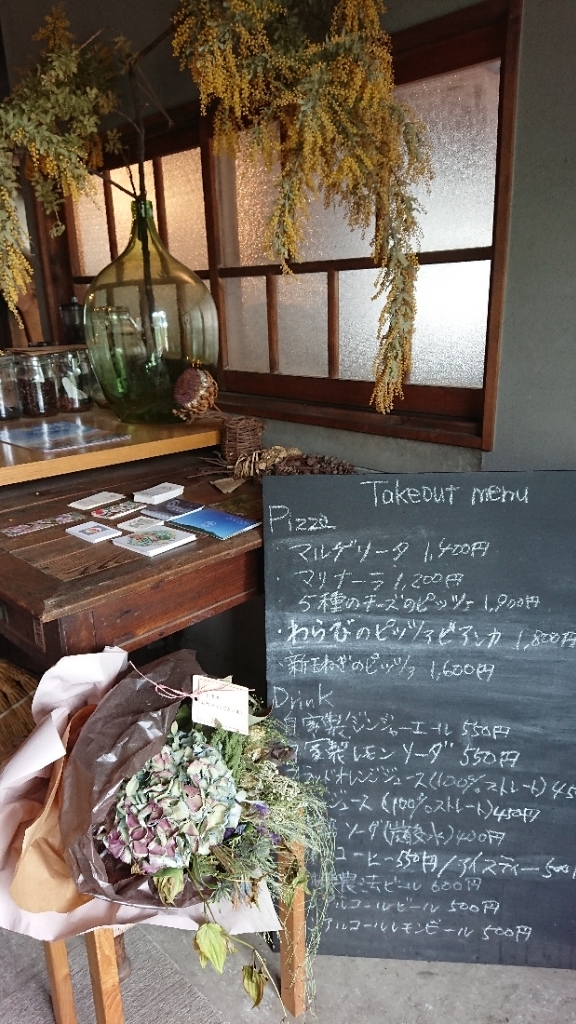 Takeout menu
Pizza
・マルゲリータ 1,400円
・マリナーラ 1,200円
5種のチーズのピッツァ 1,900円
・わらびのピッツァビアンカ 1,800円
・新玉ねぎのピッツァ 1,600円
Drink
自家製ジンジャーエール 550円
自家製レモンソーダ 550円
オレンジジュース(100%ストレート)45
ジュース(100%ストレート)450円
ソーダ 400円
コーヒー 550円/アイスティー 500
農法ビール 600円
ルコールビール 500円
ルコールレモンビール 500円